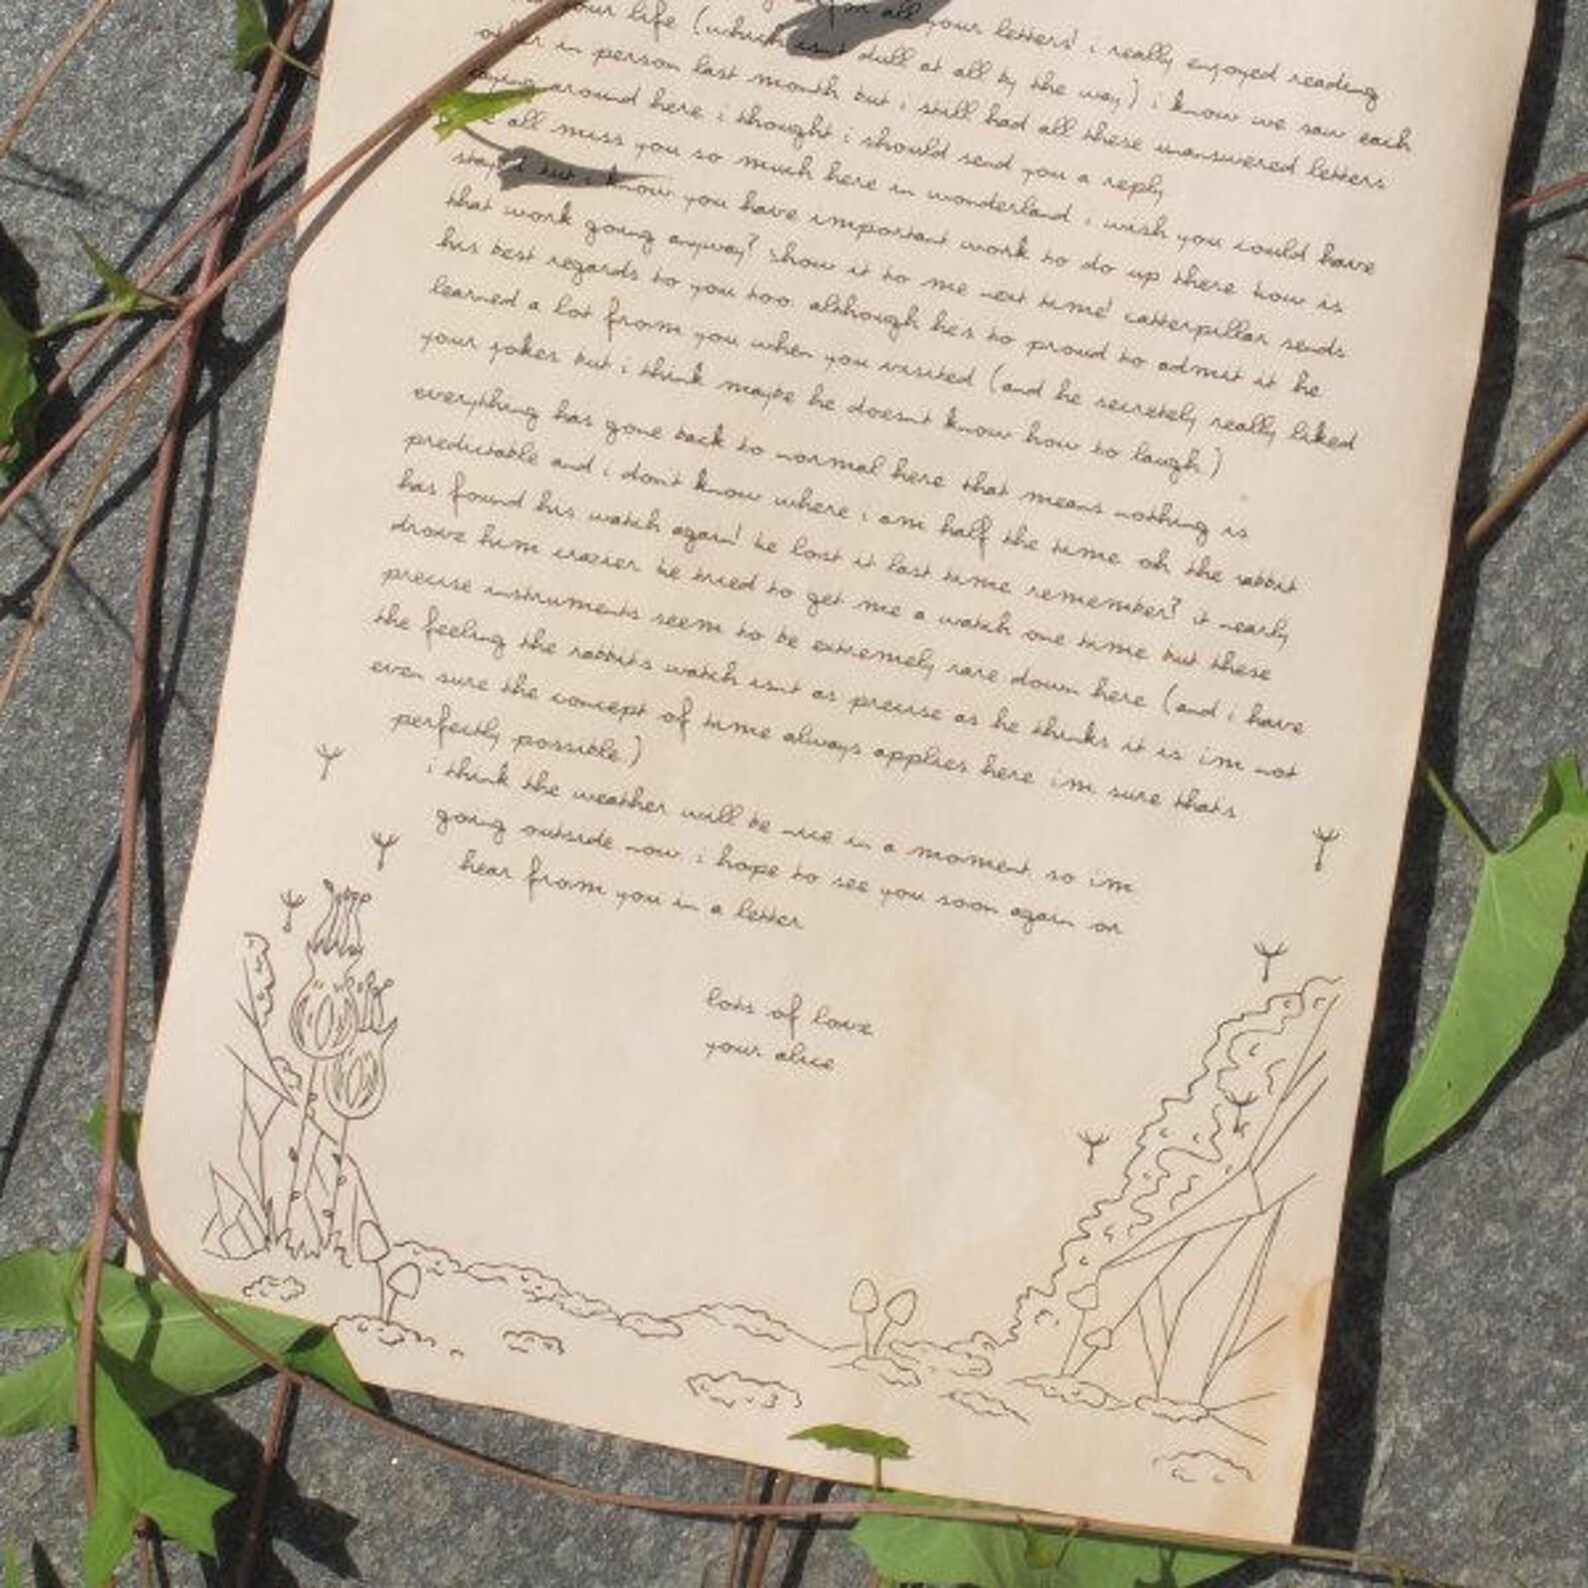 for all your letters! i really enjoyed reading
your life (which isn't dull at all by the way) i know we saw each
other in person last month but i still had all these unanswered letters
laying around here i thought i should send you a reply
we all miss you so much here in wonderland i wish you could have
stayed but i know you have important work to do up there how is
that work going anyway? show it to me next time! catterpillar sends
his best regards to you too. although hes to proud to admit it he
learned a lot from you when you visited (and he secretely really liked
your jokes but i think maybe he doesn't know how to laugh)
everything has gone back to normal here that means nothing is
predictable and i don't know where i am half the time oh the rabbit
has found his watch again! he lost it last time remember? it nearly
drove him crazier he tried to get me a watch one time but these
precise instruments seem to be extremely rare down here (and i have
the feeling the rabbits watch isnt as precise as he thinks it is im not
even sure the concept of time always applies here im sure thats
perfectly possible)
i think the weather will be nice in a moment so im
going outside now i hope to see you soon again or
hear from you in a letter
lots of love
your alice